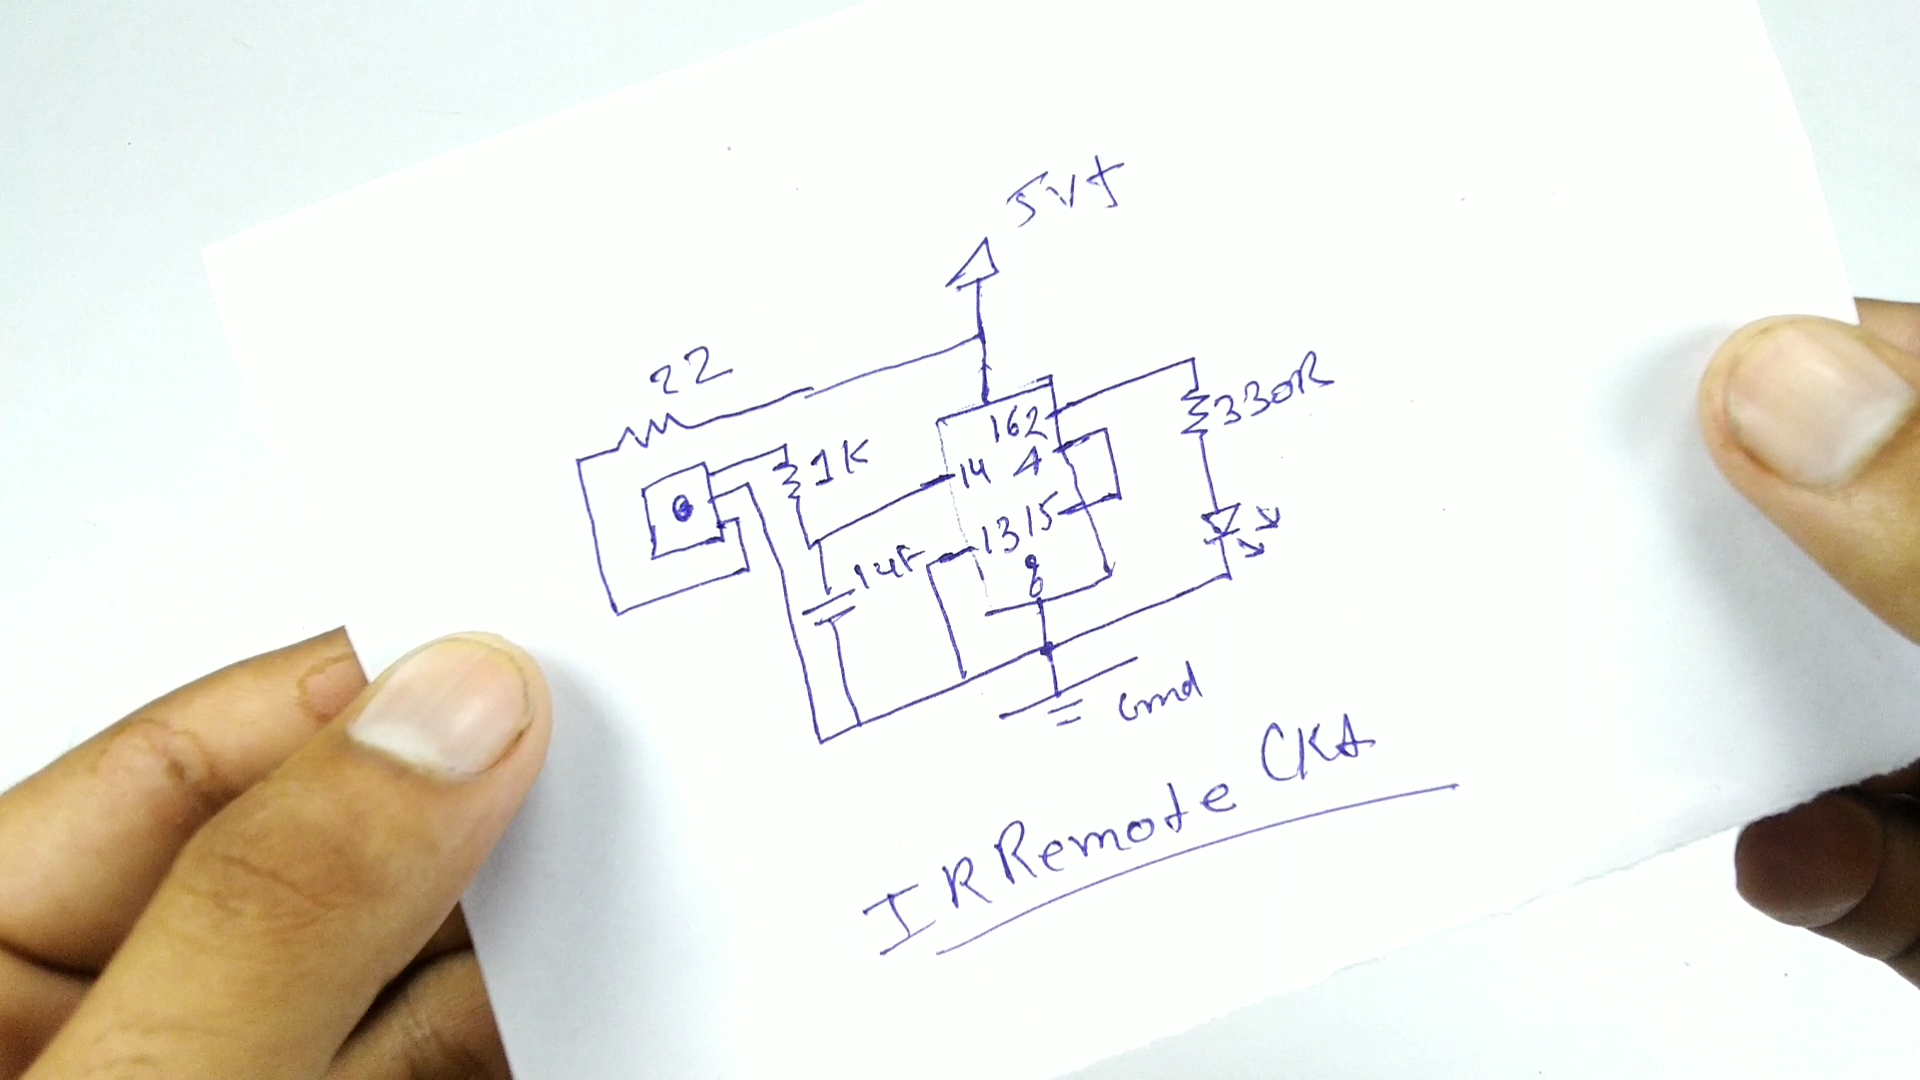 5V+
22
330R
1K
162
14 4
13 15
1uF
8
Gnd
IR Remote CKt